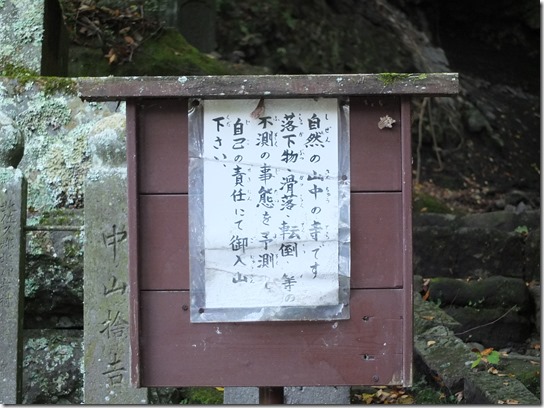 自然の山中の寺です
落下物、滑落、転倒、等の
不測の事態を予測し
自己の責任にて御入山
下さい
中山捨吉